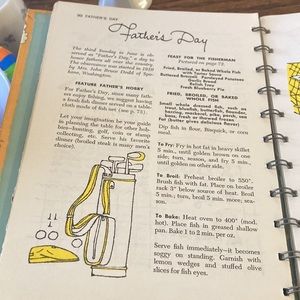 90 FATHER'S DAY
Father's Day
The third Sunday in June is observed as "Father's Day," a day to honor fathers all over the country. The observance originated in 1910 by Mrs. John Bruce Dodd of Spokane, Washington.
FEATURE FATHER'S HOBBY
For Father's Day, since many fathers enjoy fishing, we suggest having a fresh fish dinner served on a table-cloth made of fish net (see p. 73).
Let your imagination be your guide in planning the table for other hobbies—hunting, golf, coin or stamp collecting, etc. Serve his favorite dinner (broiled steak is many men's choice).
FEAST FOR THE FISHERMAN
Pictured on page 73.
Fried, Broiled, or Baked Whole Fish
with Tartar Sauce
Buttered Broccoli Parsleyed Potatoes
Garlic Bread
Relish Tray
Fresh Blueberry Pie
FRIED, BROILED, OR BAKED
WHOLE FISH
Small whole dressed fish, such as
Dip fish in flour, Bisquick, or corn
To Fry: Fry in hot fat in heavy skillet
5 min., until golden brown on one
side; turn, season, and fry 5 min.,
until golden on other side.
To Broil: Preheat broiler to 550°.
Brush fish with fat. Place on broiler
rack 3" below source of heat. Broil
5 min., turn, broil 5 min. more;
To Bake: Heat oven to 400° (mod.
hot). Place fish in greased shallow
pan. Bake 1 to 2 min. per oz.
Serve fish immediately—it becomes
soggy on standing. Garnish with
lemon wedges and stuffed olive
slices for fish eyes.